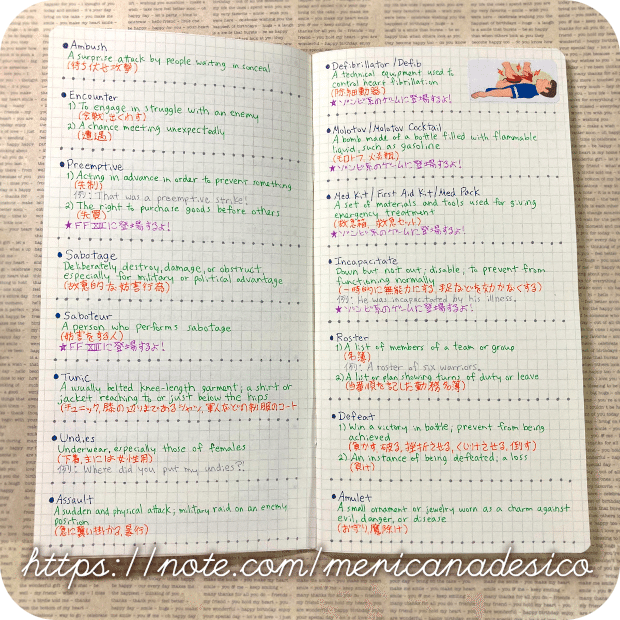 •Ambush
A surprise attack by people waiting in conceal
(待ち伏せ攻撃)
•Encounter
1) To engage in struggle with an enemy
(会戦、出くわす)
2) A chance meeting unexpectedly
(遭遇)
•Preemptive
1) Acting in advance in order to prevent something
(先制)
例: That was a preemptive strike!
2) The right to purchase goods before others
(先買)
★FF XIIIに登場するよ!
•Sabotage
Deliberately destroy, damage, or obstruct,
especially for military or political advantage
(故意的な妨害行為)
•Saboteur
A person who performs sabotage
(妨害をする人)
★FF XIIIに登場するよ!
•Tunic
A usually belted knee-length garment; a shirt or
jacket reaching to or just below the hips
•Undies
Underwear, especially those of females
(下着、主に女性用)
例: Where did you put my undies?!
•Assault
A sudden and physical attack; military raid on an enemy
position
(急に襲い掛かる、暴行)
•Defibrillator/Defib
A technical equipment used to
control heart fibrillation
(除細動器)
★ゾンビ系のゲームに登場するよ!
•Molotov/Molotov Cocktail
A bomb made of a bottle filled with flammable
liquid, such as gasoline
(モロトフ、火炎瓶)
★ゾンビ系のゲームに登場するよ!
•Med Kit/First Aid Kit/Med Pack
A set of materials and tools used for giving
emergency treatment
(救急箱、救急セット)
★ゾンビ系のゲームに登場するよ!
•Incapacitate
Down but not out; disable; to prevent from
functioning normally
(一時的に無能力にする、手足などを効かなくする)
例: He was incapacitated by his illness.
★ゾンビ系のゲームに登場するよ!
•Roster
1) A list of members of a team or group
(名簿)
例: A roster of six warriors.
2) A list or plan showing turns of duty or leave
(当番順を記した勤務名簿)
•Defeat
1) Win a victory in battle; prevent from being
achieved
(負かす、破る、挫折させる、くじけさせる、倒す)
2) An instance of being defeated; a loss
(負け)
•Amulet
A small ornament or jewelry worn as a charm against
evil, danger, or disease
(お守り、魔除け)
https://note.com/mericanadesico